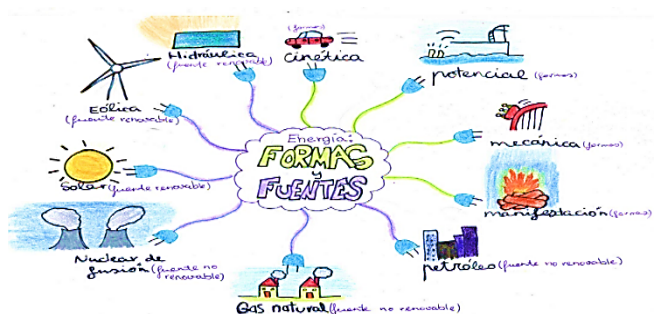 Energía:
FORMAS
y
FUENTES
Hidráulica
(fuente renovable)
(formas)
cinética
potencial (formas)
mecánica (formas)
manifestación (formas)
petróleo (fuente no renovable)
Gas natural (fuente no renovable)
Nuclear de
fusión (fuente no
renovable)
Solar (fuente renovable)
Eólica
(fuente renovable)